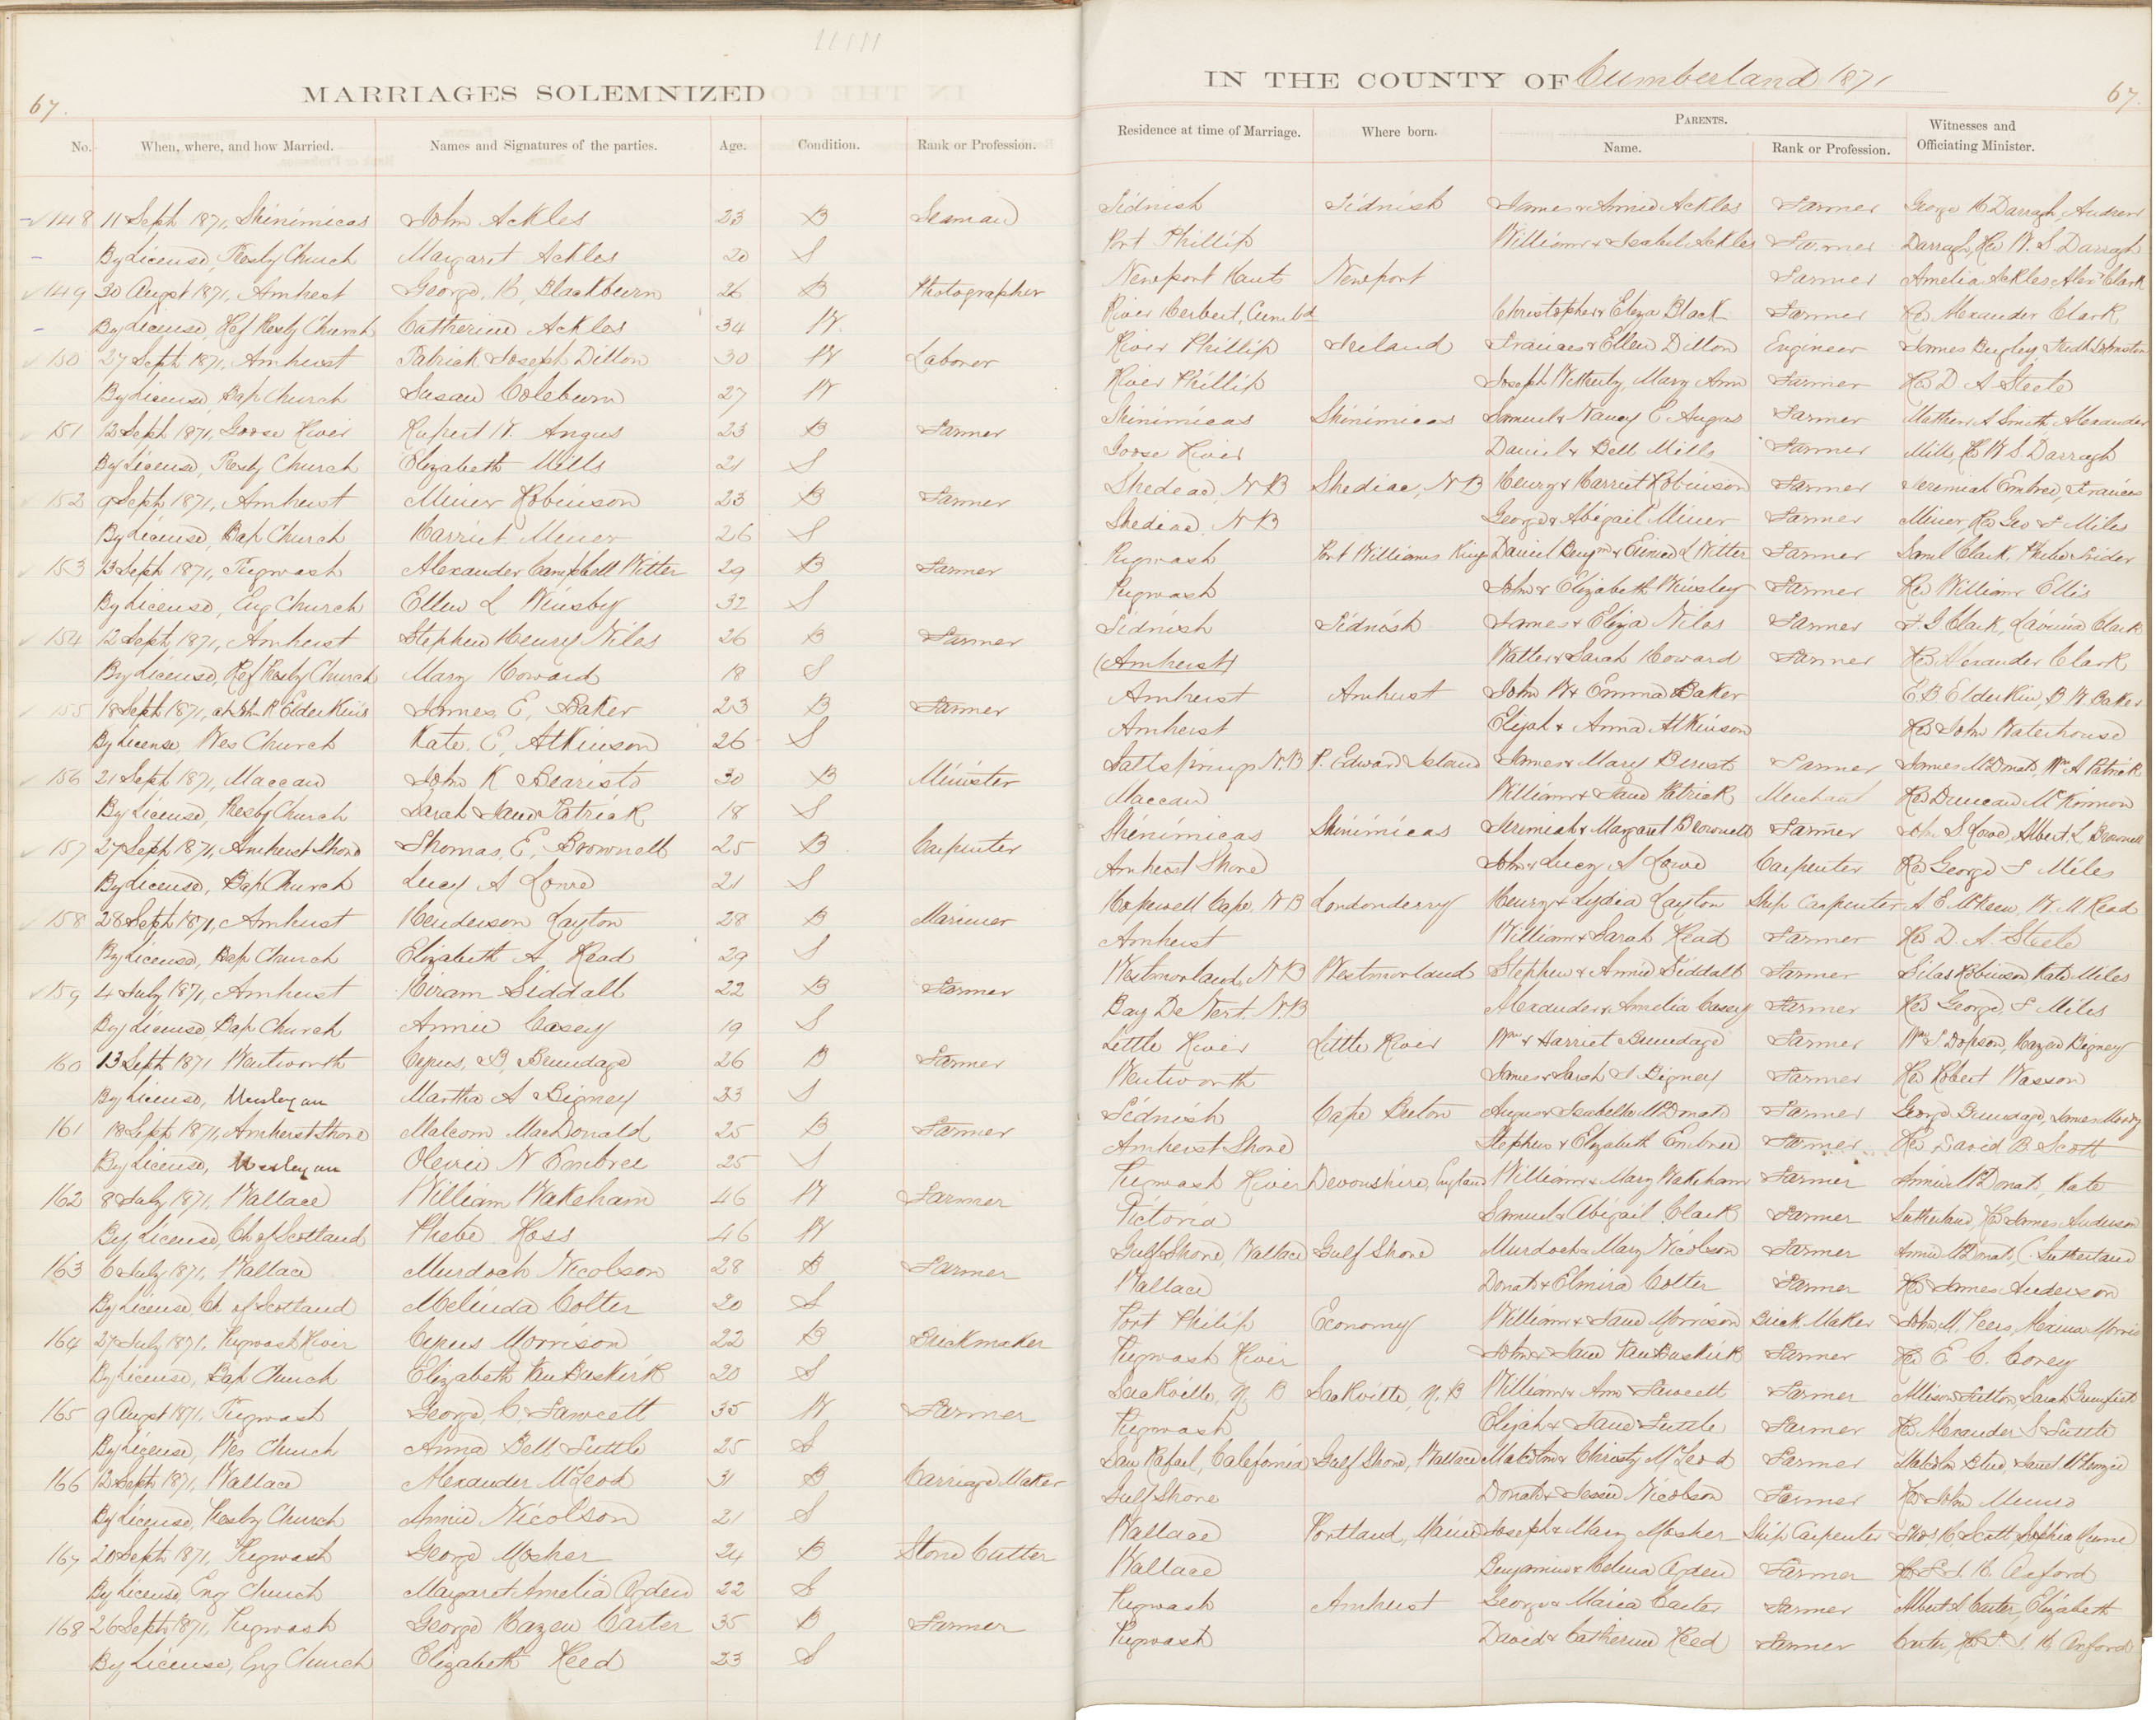 MARRIAGES SOLEMNIZED IN THE COUNTY OF Cumberland 1871
67. 67.
No. When, where, and how Married. Names and Signatures of the parties. Age. Condition. Rank or Profession. Residence at time of Marriage. Where born. PARENTS. Name. Rank or Profession. Witnesses and Officiating Minister.
148 11 Sept 1871, Shinimicas John Ackles 23 B Seaman Tidnish Tidnish James & Annie Ackles Farmer George H Darragh, Andrew
By License, Presby Church Margaret Ackles 20 S Port Phillip William & Isabel Ackles Farmer Darragh, Rev W. S Darragh
149 30 Augst 1871, Amherst George H, Blackburn 26 B Photographer Newport Hants Newport Farmer Amelia Ackles Alexr Clark
By License, Ref Presby Church Catherine Ackles 34 W. River Herbert, Cumbd Christopher & Eliza Black Farmer Rev Alexander Clark
150 27 Sept 1871, Amherst Patrick Joseph Dillon 30 W Laborer River Phillip Ireland Frances & Ellen Dillon Engineer James Johnston
By License, Bap Church Susan Coleburn 27 W River Phillip Joseph Wetherby, Mary Ann Farmer Rev D A Steele
151 12 Sept 1871, Goose River Rupert W. Angus 23 B Farmer Shinimicas Shinimicas Samuel & Nancy C. Angus Farmer Mathew A Smith Alexander
By License, Presby Church Elizabeth Mills 21 S Goose River Daniel & Bell Mills Farmer Mills, Rev W S Darragh
152 9 Sept 1871, Amherst Miner Robinson 23 B Farmer Shedeac, N B Shediac, N B Henry & Harriet Robinson Farmer Jeremiah Embree, Frances
By License, Bap Church Harriet Miner 26 S Shediac, N B George & Abigail Miner Farmer Miner, Rev Geo F Miles
153 13 Sept 1871, Pugwash Alexander Campbell Witter 29 B Farmer Pugwash Port Williams Kings Daniel Benjmn & L Witter Farmer Saml Clark,
By License, Eng Church Ellen L Winsby 32 S Pugwash John & Elizabeth Winsley Farmer Rev William Ellis
154 12 Sept, 1871, Amherst Stephen Henry Niles 26 B Farmer Tidnish Tidnish James & Eliza Niles Farmer F. G Clark, Lavinia Clark
By License, Ref Presby Church Mary Howard 18 S (Amherst) Walter & Sarah Howard Farmer Rev Alexander Clark
155 18 Sept 1871, at R Elderkins James, E, Baker 23 B Farmer Amherst Amherst John W & Emma Baker E B Elderkin, B W. Baker
By License, Wes Church Kate. E, Atkinson 26 S Amherst Elijah & Anna Atkinson Rev John Waterhouse
156 21 Sept 1871, Maccan John K Bearisto 30 B Minister Saltsprings N.B P. Edward Island James & Mary Farmer James McDonald, Wm A Patrick
By License, Presby Church Sarah Jane Patrick 18 S Maccan William & Jane Patrick Merchant Rev Duncan McKinnon
157 27 Sept 1871, Amherst Shore Thomas, E, Brownell 25 B Carpenter Shinimicas Shinimicas Jeremiah & Margaret Brownell Farmer John S. Lowe, Albert L. Brownell
By License, Bap Church Lucy A Lowe 21 S Amherst Shore John & Lucy A Lowe Carpenter Rev George F Miles
158 28 Sept 1871, Amherst Henderson Layton 28 B Mariner Hopewell Cape, N B Londonderry Henry & Lydia Layton Ship Carpenter A. E McKeen, W. M. Read
By License, Bap Church Elizabeth A, Read 29 S Amherst William & Sarah Read Farmer Rev D. A. Steele
159 4 July 1871, Amherst Hiram Siddall 22 B Farmer Westmorland, N B Westmorland Stephen & Annie Siddall Farmer Silas Robinson Kate Miles
By License, Bap Church Annie Casey 19 S Bay De Vert, N B Alexander & Amelia Casey Farmer Rev George, F Miles
160 13 Sept 1871 Wentworth Cyrus, B, Brundage 26 B Farmer Little River Little River Wm & Harriet Brundage Farmer Wm S Dobson, Hazen Bigney
By License, Wesleyan Martha A Bigney 23 S Wentworth James & Sarah J Bigney Farmer Rev Robert Wasson
161 18 Sept 1871, Amherst Shore Malcom MacDonald 25 B Farmer Tidnish Cape Breton Angus & Isabella McDonald Farmer George Brundage, James
By License, Wesleyan N Embree 25 S Amherst Shore Stephen & Elizabeth Embree Farmer Rev David B. Scott
162 8 July 1871, Wallace William Wakeham 46 W Farmer Pugwash River Devonshire, England William & Mary Wakeham Farmer Annie McDonald, Kate
By License, Ch of Scotland Phebe Ross 46 W Pictoria Samuel & Abigail Clark Farmer Sutherland, Rev James Anderson
163 6 July 1871, Wallace Murdoch Nicolson 28 B Farmer Gulf Shore, Wallace Gulf Shore Murdoch & Mary Nicolson Farmer Annie McDonald, C. Sutherland
By License, Ch of Scotland Melinda Colter 20 S Wallace Donald & Elmira Colter Farmer Rev James Anderson
164 27 July 1871, Pugwash River Cyrus Morrison 22 B Brickmaker Port Philip Economy William & Jane Morrison Brick Maker John M. Peers, Morris
By License, Bap Church Elizabeth VanBuskirk 20 S Pugwash River John & Jane VanBuskirk Farmer Rev E C. Corey
165 9 Augst 1871, Pugwash George, C Fawcett 35 W Farmer Sackville, N B Sackville, N. B William & Ann Fawcett Farmer Allison Sarah
By License, Wes Church Anna Bell Tuttle 25 S Pugwash Elijah & Jane Tuttle Farmer Rev Alexander S Tuttle
166 12 Sept 1871, Wallace Alexander McLeod 31 B Carriage Maker San Rafael, Calefornia Gulf Shore, Wallace Malcolm & Christy McLeod Farmer Malcolm Janet McKenzie
By License, Presby Church Annie Nicolson 21 S Gulf Shore Donald & Jessie Nicolson Farmer Rev John Munro
167 20 Sept 1871, Pugwash George Mosher 24 B Stone Cutter Wallace Portland, Maine Joseph & Mary Mosher Ship Carpenter Thos. H, Scott, Sophia
By License, Eng Church Margaret Amelia Ogden 22 S Wallace Benjamin & Melina Ogden Farmer Rev H. Axford
168 26 Sept 1871, Pugwash George Hazen Carter 35 B Farmer Pugwash Amherst George & Maria Carter Farmer Albert S Carter, Elizabeth
By License, Eng Church Elizabeth Reed 23 S Pugwash David & Catherine Reed Farmer Carter, Rev H Axford